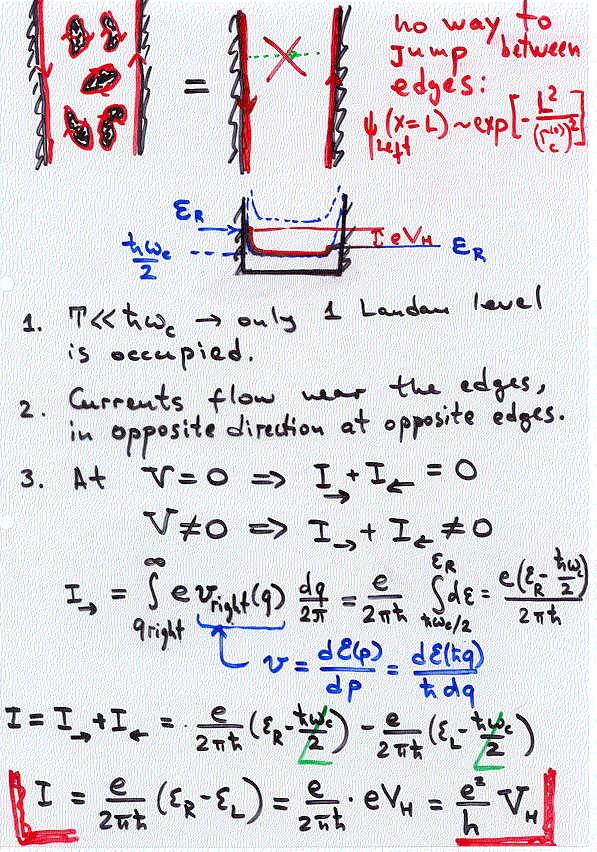 =
no way to
jump between
edges:
ψ_Left (x=L) ~ exp[-L²/(r_c^(0))²]
ε_R
ħω_c/2
eV_H
ε_R
1. T << ħω_c → only 1 Landau level
is occupied.
2. Currents flow near the edges,
in opposite direction at opposite edges.
3. At V = 0 => I_→ + I_← = 0
V ≠ 0 => I_→ + I_← ≠ 0
I_→ = ∫_{q right}^{∞} e v_right(q) dq/2π = e/2πħ ∫_{ħω_c/2}^{ε_R} dε = e(ε_R - ħω_c/2)/2πħ
v = dε(p)/dp = dε(ħq)/ħdq
I = I_→ + I_← = e/2πħ (ε_R - ħω_c/2) - e/2πħ (ε_L - ħω_c/2)
I = e/2πħ (ε_R - ε_L) = e/2πħ · eV_H = e²/h V_H